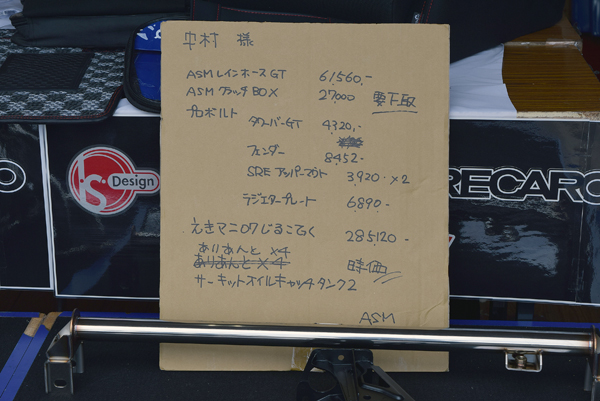 中村 様
ASM レインホース GT 61560.-
ASM クラッチ BOX 27000 要下取
プロボルト
タワーバーGT 4320.-
フェンダー
8452.-
SRE アッパーマウト 3920. ×2
ラジエタープレート 6890.-
えきマニ07じるこてく 285120.-
ありあんと ×4
ありあんと ×4 時価
サーキットオイルキャッチタンク2
ASM
S. Design
RECARO